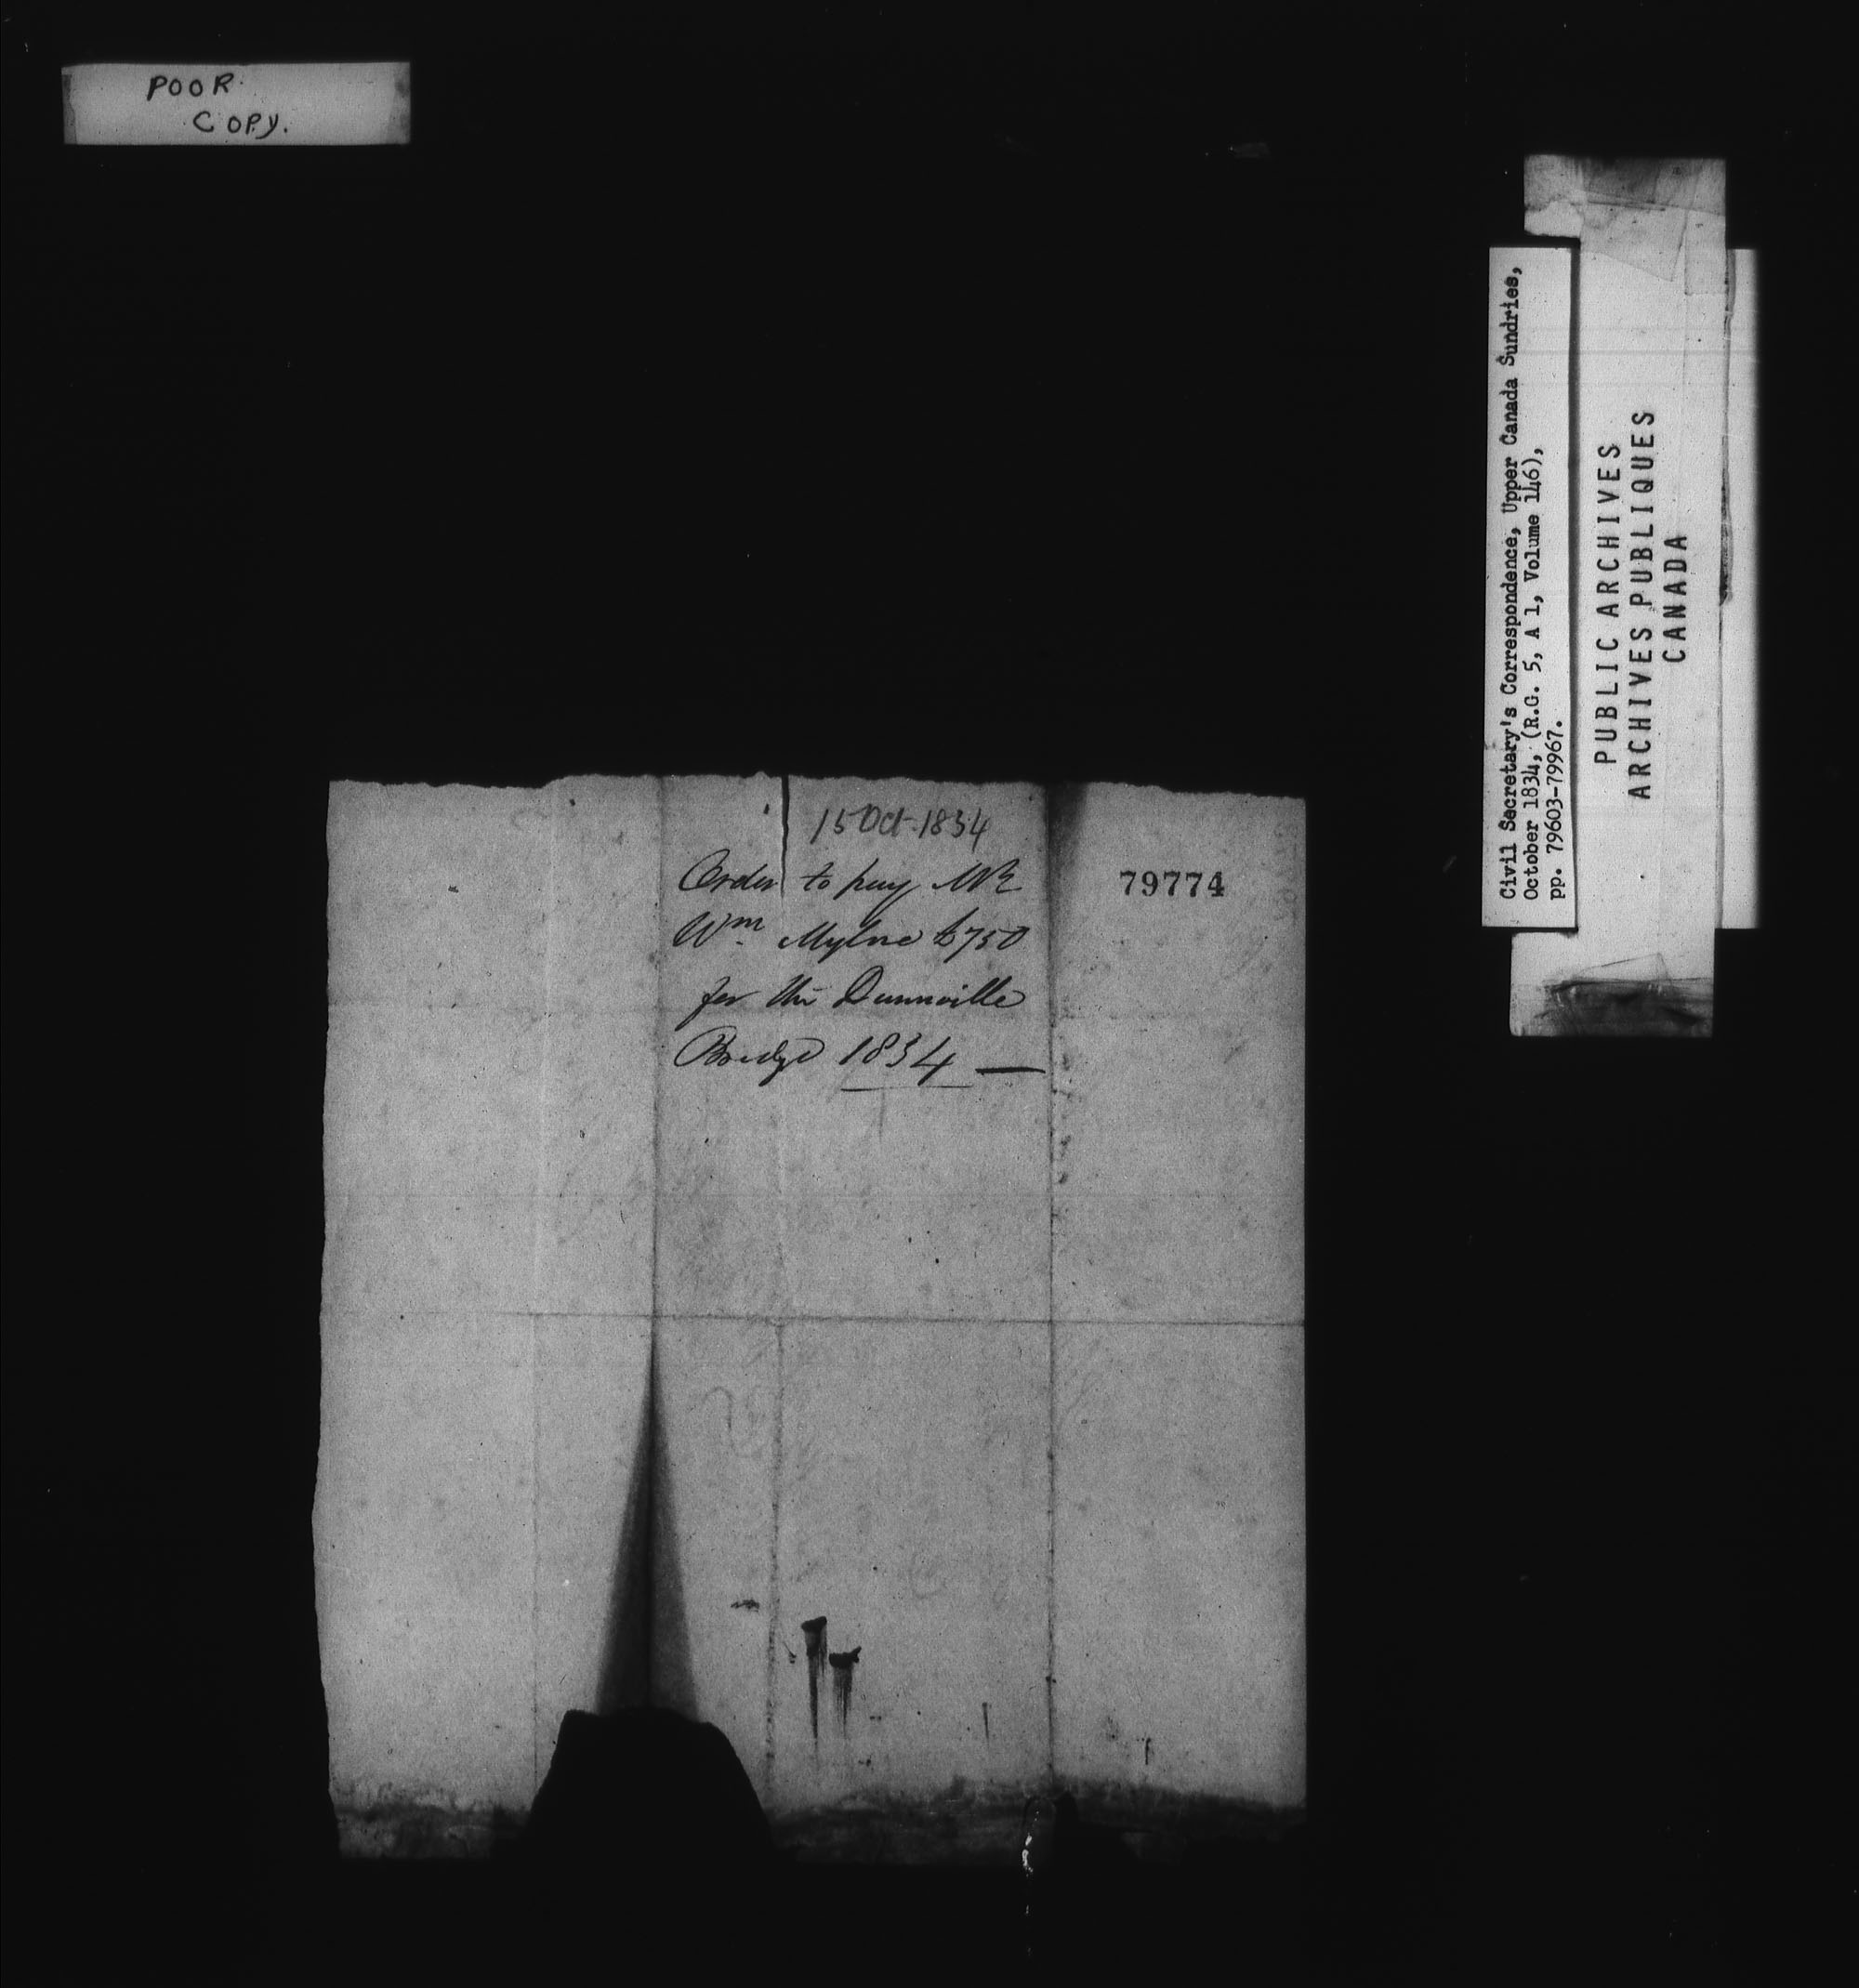 POOR
COPY.
15 Oct. 1834
Order to pay Mr
Wm. Mylne £750
for the Dunnville
Bridge 1834 —
79774
Civil Secretary's Correspondence, Upper Canada Sundries,
October 1834, (R.G. 5, A 1, Volume 146),
pp. 79603-79967.
PUBLIC ARCHIVES
ARCHIVES PUBLIQUES
CANADA